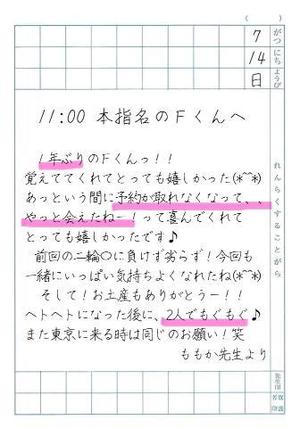 ( )
7 がつ
14 にち
日 ようび
れんらくすることがら
11:00 本指名のFくんへ
1年ぶりのFくんっ！！
覚えててくれてとっても嬉しかった(*^^*)
あっという間に予約が取れなくなって、、
やっと会えたねー！って喜んでくれて
とっても嬉しかったです♪
前回の二輪〇に負けず劣らず！今回も
一緒にいっぱい気持ちよくなれたね(*^^*)
そして！お土産もありがとうー！！
ヘトヘトになった後に、2人でもぐもぐ♪
また東京に来る時は同じのお願い！笑
ももか先生より